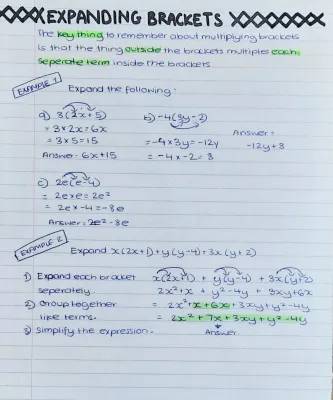 EXPANDING BRACKETS
The key thing to remember about multiplying brackets
is that the thing outside the brackets multiples each
seperate term inside the brackets.
EXAMPLE 1
Expand the following:
a) 3(2x+5)
= 3×2x=6x
= 3×5=15
Answer: 6x+15
b) -4(3y-2)
= -4×3y=-12y
= -4×-2=8
Answer:
-12y+8
c) 2e(e-4)
= 2e×e=2e²
= 2e×-4=-8e
Answer: 2e²-8e
EXAMPLE 2
Expand x(2x+1)+y(y-4)+3x(y+2)
1) Expand each bracket seperately.
2) Group together like terms.
3) Simplify the expression.
x(2x+1) + y(y-4) + 3x(y+2)
2x²+x + y²-4y + 3xy+6x
= 2x²+x+6x+3xy+y²-4y
= 2x²+7x+3xy+y²-4y
Answer